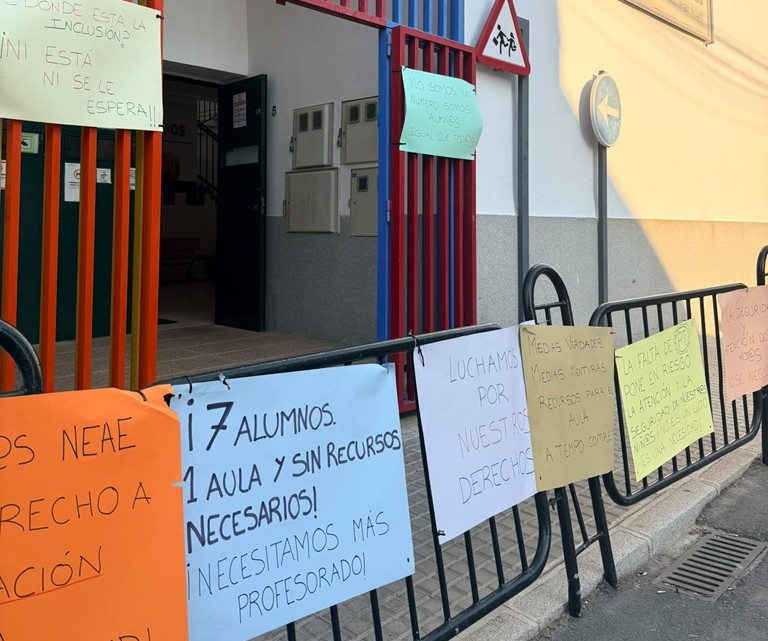 ¿DÓNDE ESTÁ LA
INCLUSIÓN?
¡NI ESTÁ
NI SE LE
ESPERA!!
NO SOMOS UN
NÚMERO SOMOS
ALUMN@S
IGUAL QUE
5
@S NEAE
RECHO A
ACIÓN
¡7 ALUMNOS.
1 AULA Y SIN RECURSOS
NECESARIOS!
¡NECESITAMOS MÁS
PROFESORADO!
LUCHAMOS
POR
NUESTROS
DERECHOS
MEDIAS VERDADES
MEDIAS MENTIRAS
RECURSOS PARA EL
AULA
A TIEMPO COMPLE
LA FALTA DE PT
PONE EN RIESGO
LA ATENCIÓN Y LA
SEGURIDAD DE NUESTROS
NIÑOS ¡NO ES UN LUJO
ES UNA NECESIDAD!
LA SEGURIDA
Y